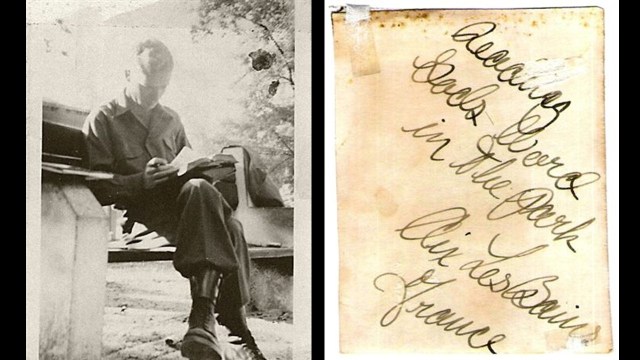 Reading
God's Word
in the park
Aix Les Bains
France